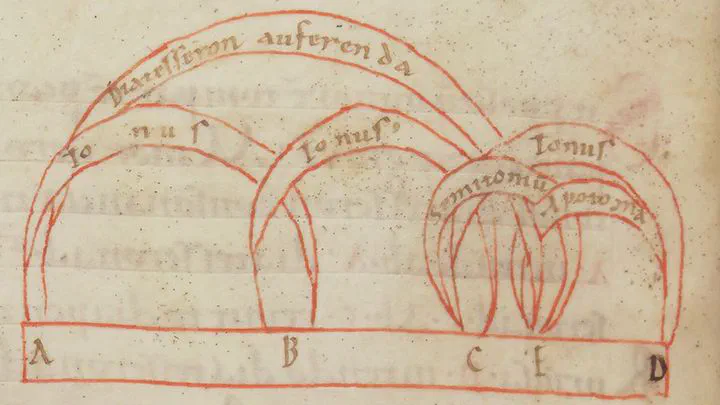 Diatesseron auferenda
Tonus
Tonus
Tonus
Semitoniū
Apotoma
A B C E D